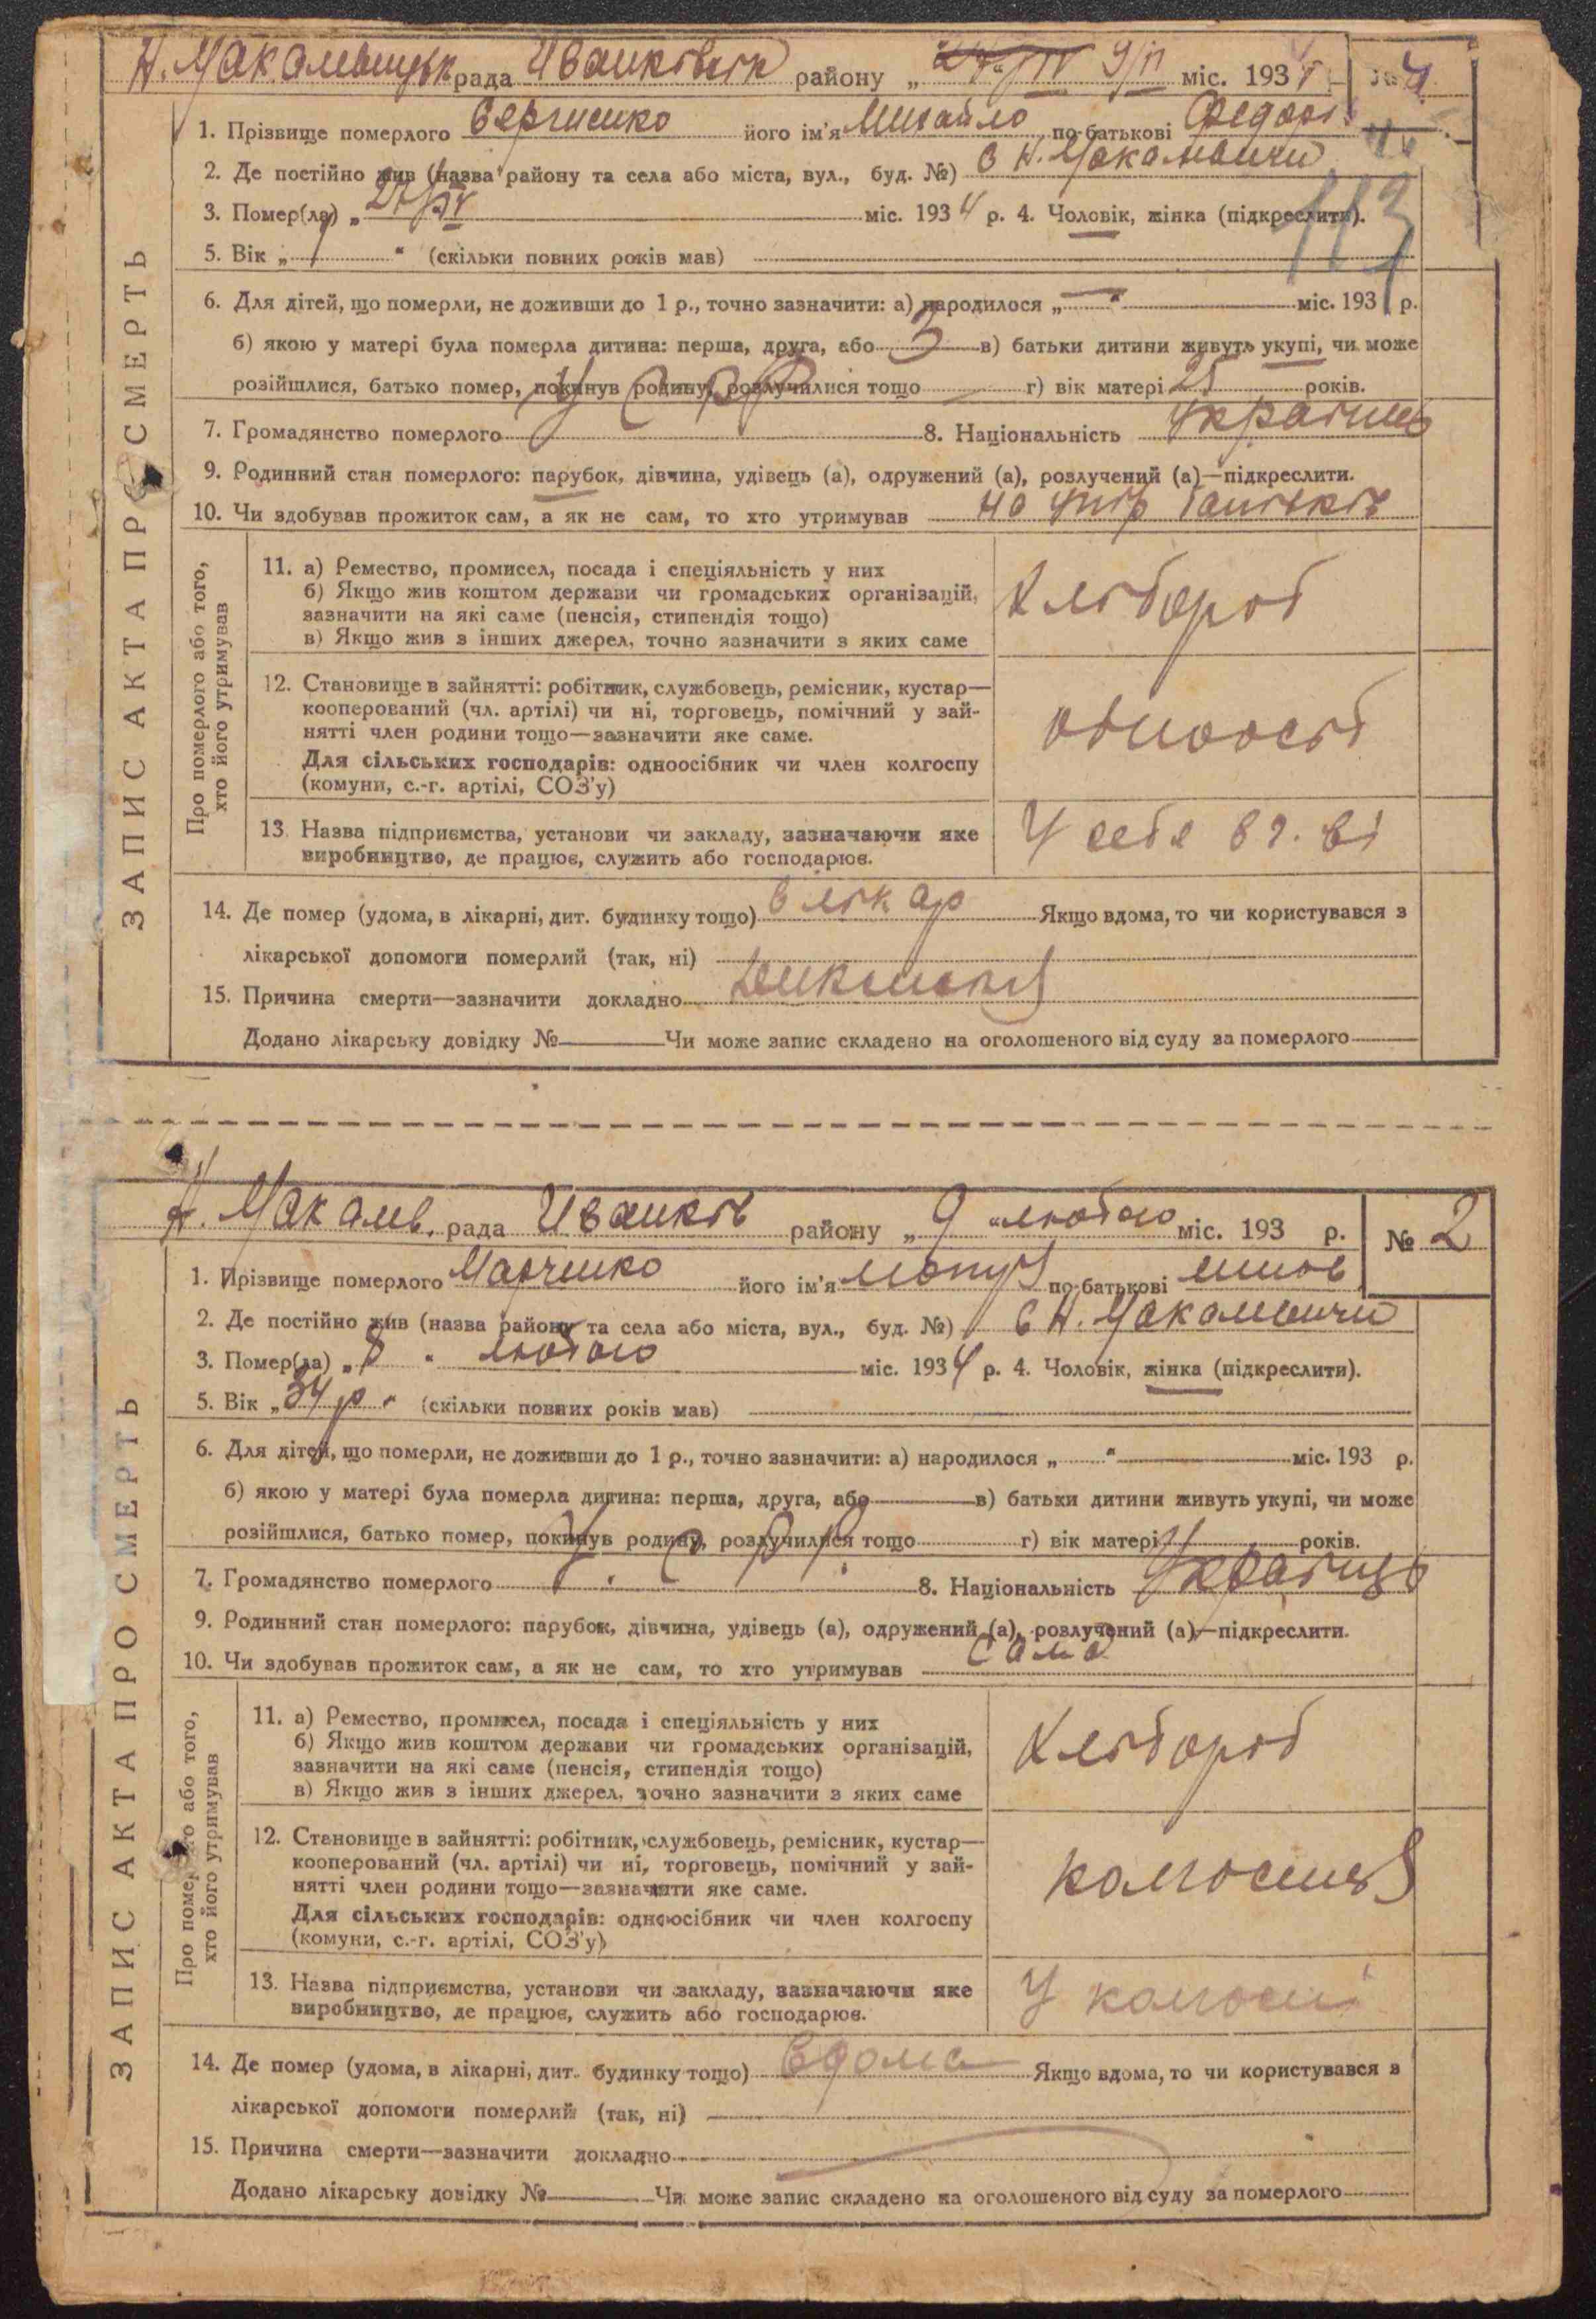 Н. Макалевицьк рада Иванківськ району „ 9/ІІ міс. 1934 №
ЗАПИС АКТА ПРО СМЕРТЬ
1. Прізвище померлого Сергиенко його ім'я Михайло по-батькові Федор
2. Де постійно жив (назва району та села або міста, вул., буд. №) с Н. Макалевичи
3. Помер(ла) „ міс. 1934 р. 4. Чоловік, жінка (підкреслити).
113
5. Вік „ 1 “ (скільки повних років мав)
6. Для дітей, що померли, не доживши до 1 р., точно зазначити: а) народилося „ “ міс. 193 р.
б) якою у матері була померла дитина: перша, друга, або 3 в) батьки дитини живуть укупі, чи може
розійшлися, батько помер, покинув родину, розлучилися тощо г) вік матері 25 років.
7. Громадянство померлого УСРР 8. Національність Украінець
9. Родинний стан померлого: парубок, дівчина, удівець (а), одружений (а), розлучений (а)—підкреслити.
10. Чи здобував прожиток сам, а як не сам, то хто утримував на утр батьків
Про померлого або того,
хто його утримував
11. а) Ремество, промисел, посада і спеціяльність у них
б) Якщо жив коштом держави чи громадських організацій,
зазначити на які саме (пенсія, стипендія тощо)
в) Якщо жив з інших джерел, точно зазначити з яких саме
Хлібороб
12. Становище в зайнятті: робітник, службовець, ремісник, кустар—
кооперований (чл. артілі) чи ні, торговець, помічний у зай-
нятті член родини тощо—зазначити яке саме.
Для сільських господарів: одноосібник чи член колгоспу
(комуни, с.-г. артілі, СОЗ'у)
одноосіб
13. Назва підприємства, установи чи закладу, зазначаючи яке
виробництво, де працює, служить або господарює.
У себе в г. ві
14. Де помер (удома, в лікарні, дит. будинку тощо) в лікар Якщо вдома, то чи користувався з
лікарської допомоги померлий (так, ні)
15. Причина смерти—зазначити докладно
Додано лікарську довідку № Чи може запис складено на оголошеного від суду за померлого
Н. Макалев. рада Иванків району „ 9 “ лютого міс. 193 р. № 2
ЗАПИС АКТА ПРО СМЕРТЬ
1. Прізвище померлого Марченко його ім'я по-батькові
2. Де постійно жив (назва району та села або міста, вул., буд. №) с Н. Макалевичи
3. Помер(ла) „ 8 “ лютого міс. 1934 р. 4. Чоловік, жінка (підкреслити).
5. Вік „ 34 р “ (скільки повних років мав)
6. Для дітей, що померли, не доживши до 1 р., точно зазначити: а) народилося „ “ міс. 193 р.
б) якою у матері була померла дитина: перша, друга, або в) батьки дитини живуть укупі, чи може
розійшлися, батько помер, покинув родину, розлучилися тощо г) вік матері років.
7. Громадянство померлого У.С.Р.Р. 8. Національність Украінць
9. Родинний стан померлого: парубок, дівчина, удівець (а), одружений (а), розлучений (а)—підкреслити.
10. Чи здобував прожиток сам, а як не сам, то хто утримував сама
Про померлого або того,
хто його утримував
11. а) Ремество, промисел, посада і спеціяльність у них
б) Якщо жив коштом держави чи громадських організацій,
зазначити на які саме (пенсія, стипендія тощо)
в) Якщо жив з інших джерел, точно зазначити з яких саме
Хлібороб
12. Становище в зайнятті: робітник, службовець, ремісник, кустар—
кооперований (чл. артілі) чи ні, торговець, помічний у зай-
нятті член родини тощо—зазначити яке саме.
Для сільських господарів: одноосібник чи член колгоспу
(комуни, с.-г. артілі, СОЗ'у)
13. Назва підприємства, установи чи закладу, зазначаючи яке
виробництво, де працює, служить або господарює.
У колгоспі
14. Де помер (удома, в лікарні, дит. будинку тощо) вдома Якщо вдома, то чи користувався з
лікарської допомоги померлий (так, ні)
15. Причина смерти—зазначити докладно
Додано лікарську довідку № Чи може запис складено на оголошеного від суду за померлого